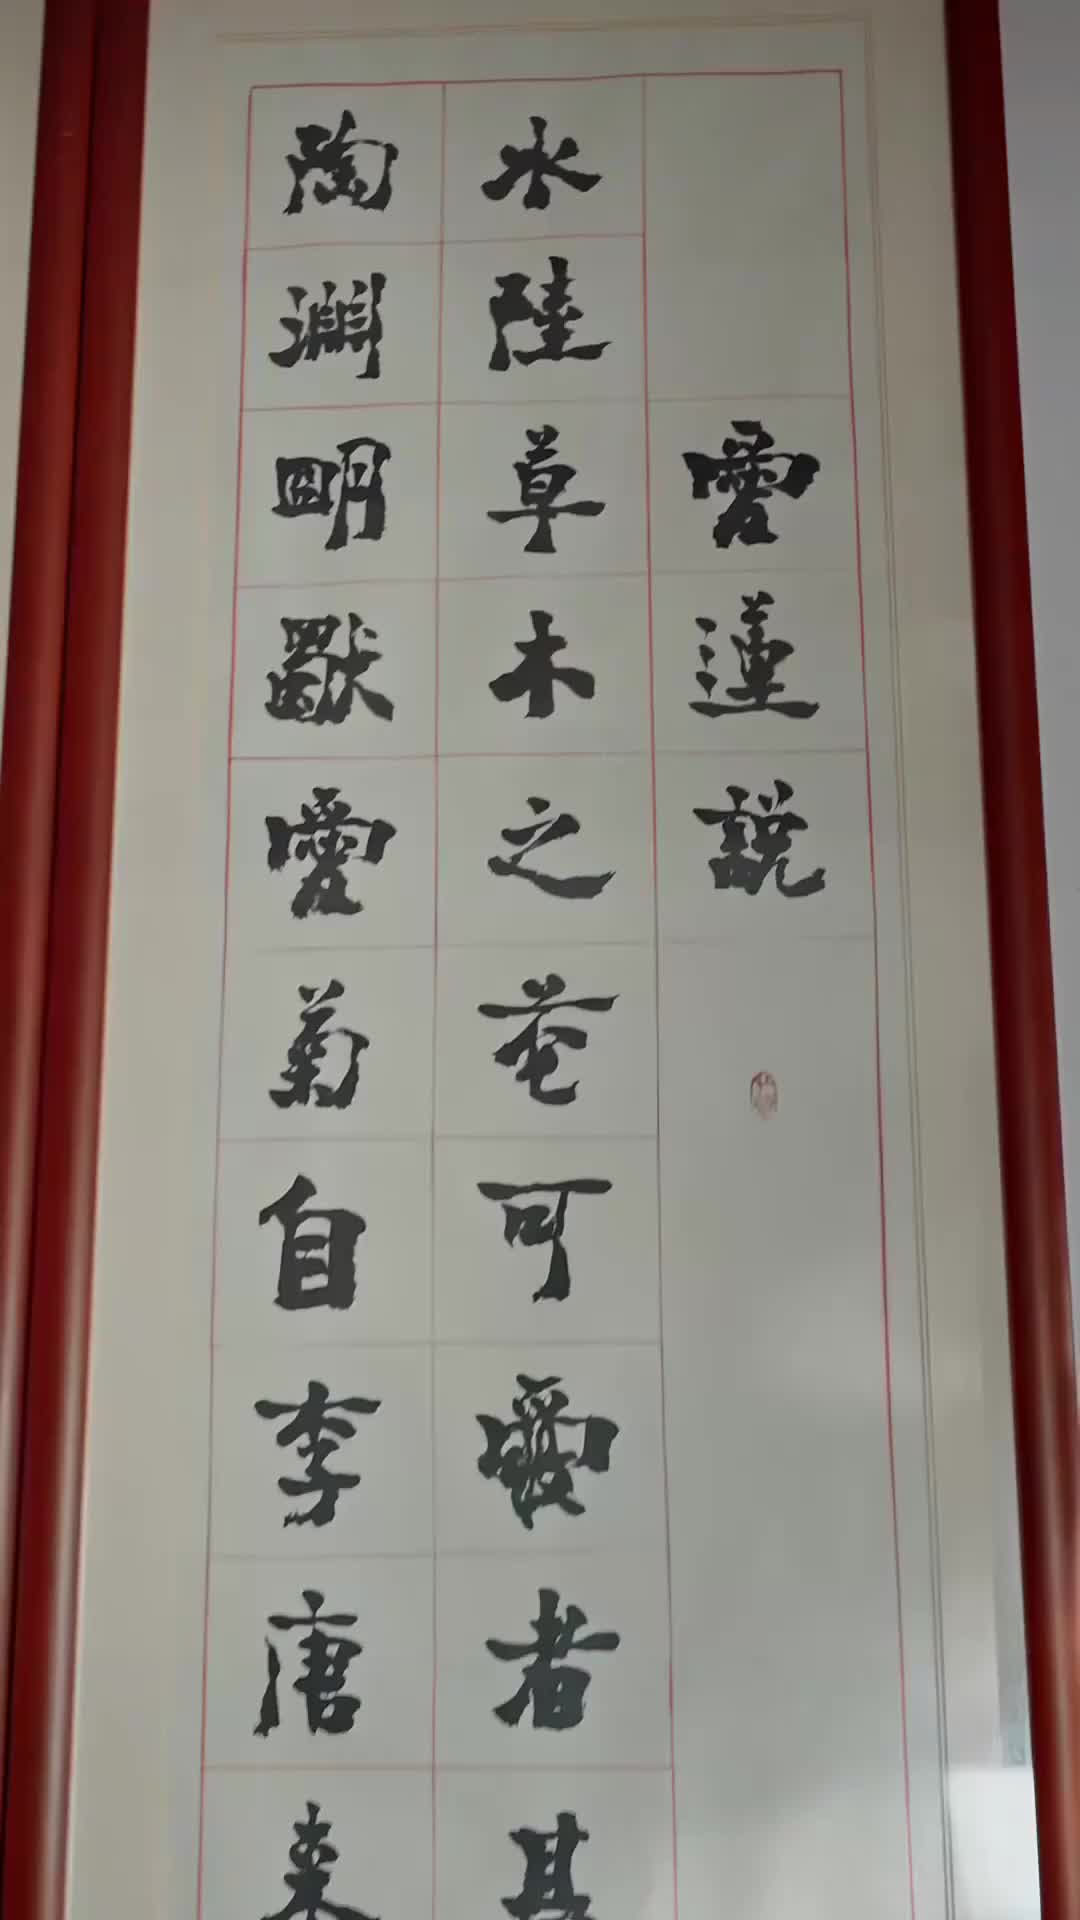 愛蓮説
水陸草木之花可愛者甚
陶淵明獨愛菊自李唐来